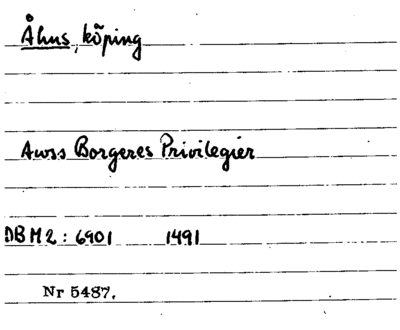 Åhus, köping
Awss Borgeres Privilegier
DBM2: 6901 1491
Nr 5487.